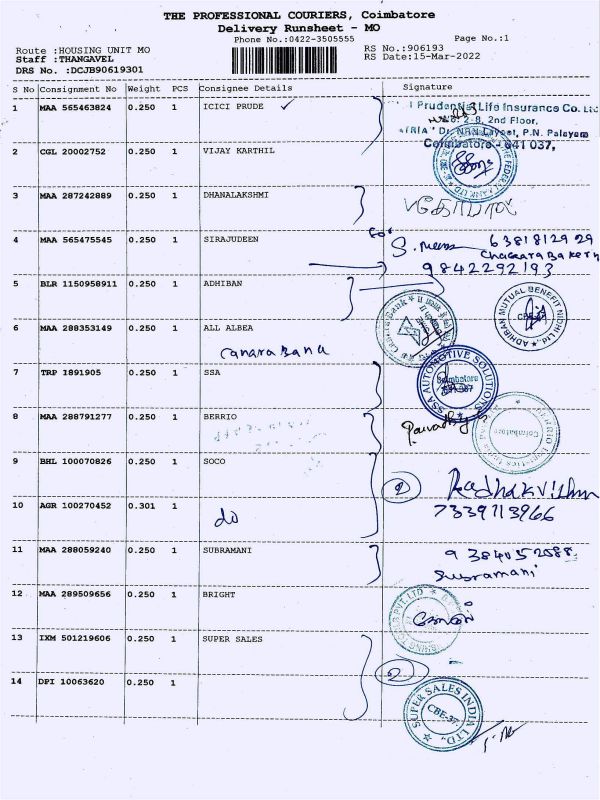 THE PROFESSIONAL COURIERS, Coimbatore
Delivery Runsheet - MO
Phone No.:0422-3505555
Page No.:1
Route :HOUSING UNIT MO
RS No.:906193
Staff :THANGAVEL
RS Date:15-Mar-2022
DRS No. :DCJB90619301
S No Consignment No Weight PCS Consignee Details Signature
1 MAA 565463824 0.250 1 ICICI PRUDE ✓
Prudential Life Insurance Co. Ltd
2nd Floor,
Layout, P.N. Palayam
Coimbatore - 641 037,
2 CGL 20002752 0.250 1 VIJAY KARTHIL
3 MAA 287242889 0.250 1 DHANALAKSHMI
4 MAA 565475545 0.250 1 SIRAJUDEEN
6381812929
9842292193
5 BLR 1150958911 0.250 1 ADHIBAN
ADHIBAN MUTUAL BENEFIT NIDHI LTD
6 MAA 288353149 0.250 1 ALL ALBEA
Canara Bank
7 TRP 1891905 0.250 1 SSA
SSA AUTOMOTIVE SOLUTIONS
Coimbatore
8 MAA 288791277 0.250 1 BERRIO
Coimbatore
9 BHL 100070826 0.250 1 SOCO
2
7339713966
10 AGR 100270452 0.301 1
do
11 MAA 288059240 0.250 1 SUBRAMANI
9384052088
Subramani
12 MAA 289509656 0.250 1 BRIGHT
13 IXM 501219606 0.250 1 SUPER SALES
2
14 DPI 10063620 0.250 1
SUPER SALES INDIA LTD.
CBE-37.